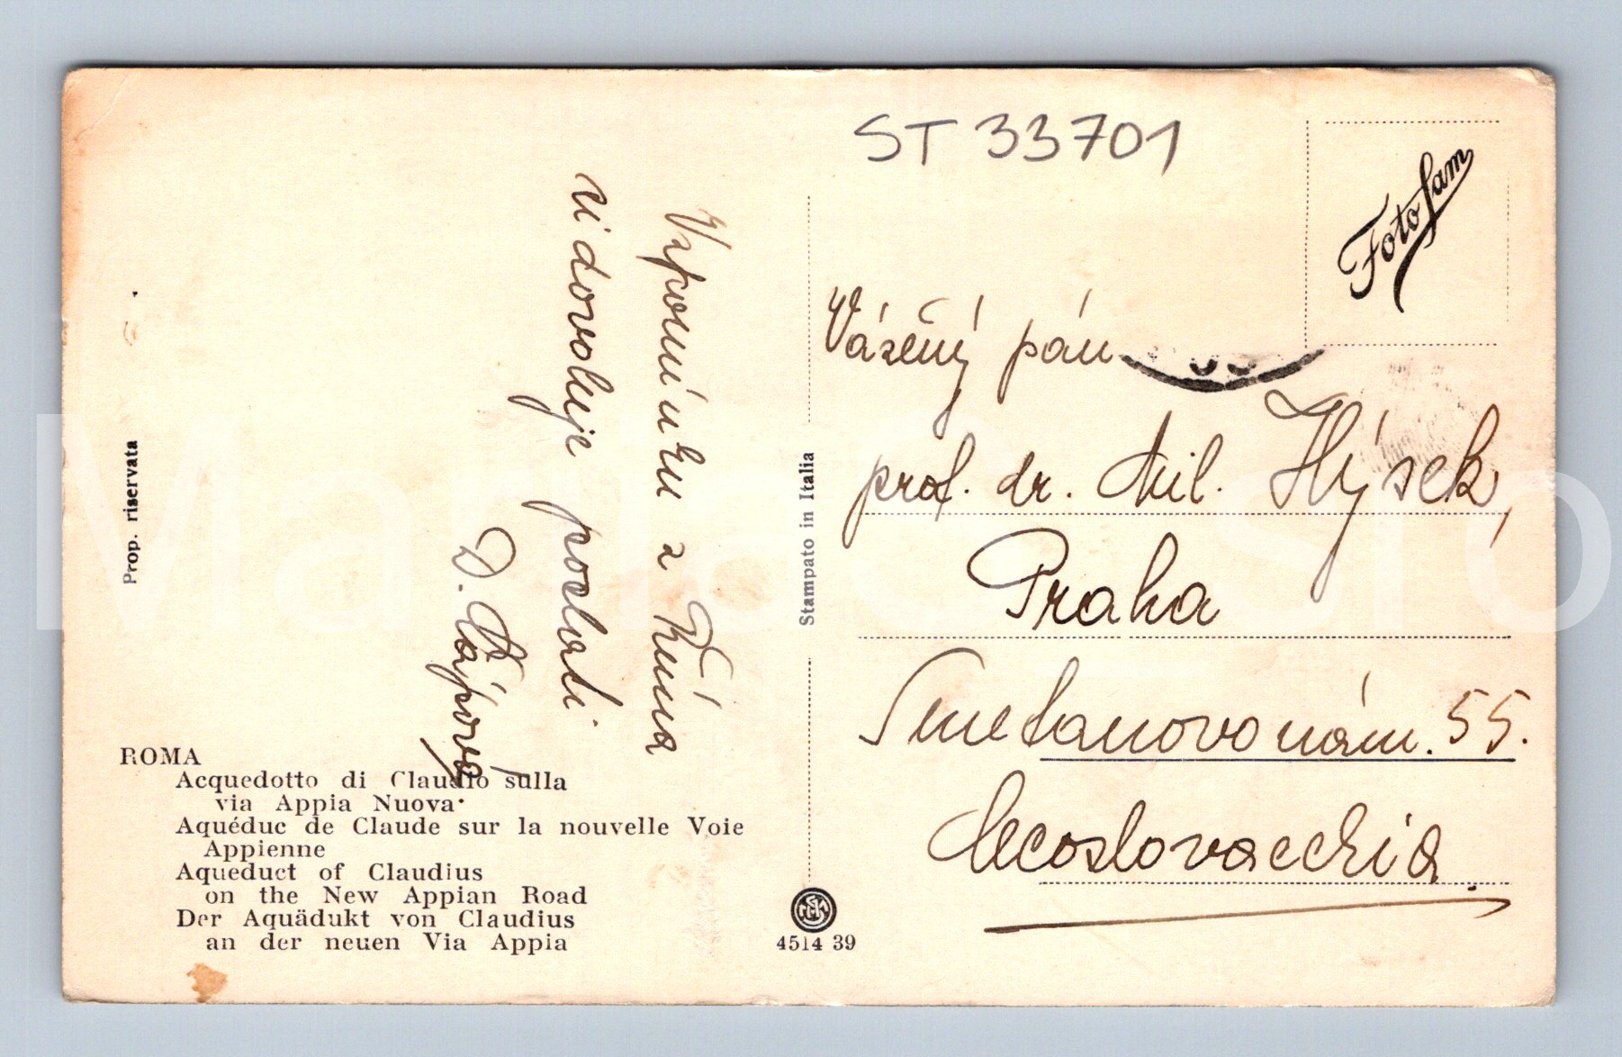 ST 33701
Foto Sam
Vzpomínku z Říma
si dovoluje poslati
D. Kápová
Vázený pán
prof. dr. Mil. Hýsek,
Praha
Smetanovo nám. 55.
Cecoslovacchia
Prop. riservata
Stampato in Italia
ROMA
Acquedotto di Claudio sulla
via Appia Nuova
Aquéduc de Claude sur la nouvelle Voie
Appienne
Aqueduct of Claudius
on the New Appian Road
Der Aquädukt von Claudius
an der neuen Via Appia
4514 39